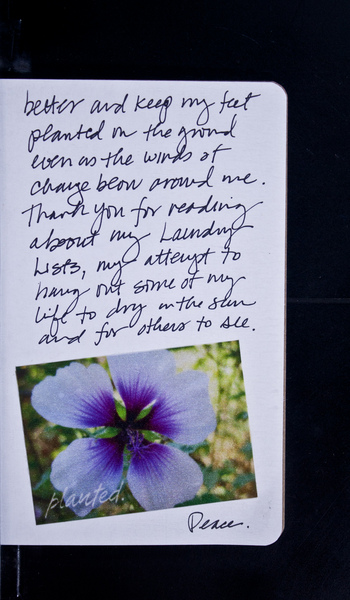 better and keep my feet
planted on the ground
even as the winds of
change blow around me.
Thank you for reading
about my Laundry
Lists, my attempt to
hang out some of my
life to dry in the sun
and for others to see.
planted.
Peace.